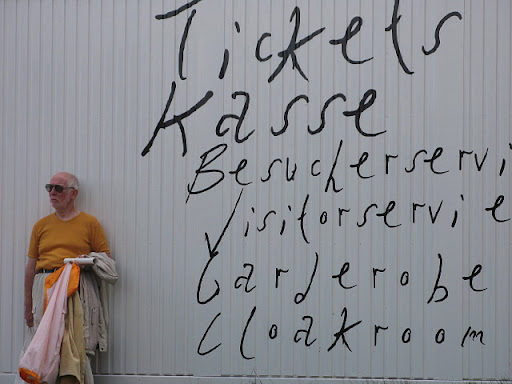 Tickets
Kasse
Besucherservi
Visitorservie
Garderobe
Cloakroom